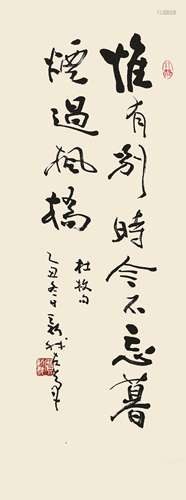 惟有别時今不忘暮
煙過楓橋
杜牧句
乙丑冬日